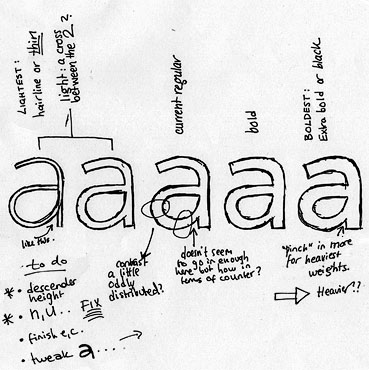 LIGHTEST:
hairline or thin
light: a cross
between the 2?
current regular
bold
BOLDEST:
Extra bold or black
a a a a a
like this.
contrast
a little
oddly
distributed?
doesn't seem
to go in enough
here but how in
terms of counter?
"pinch" in more
for heaviest
weights.
Heavier??
to do
* • descender
height
* • n, u... FIX
• finish e, c.
• tweak a....